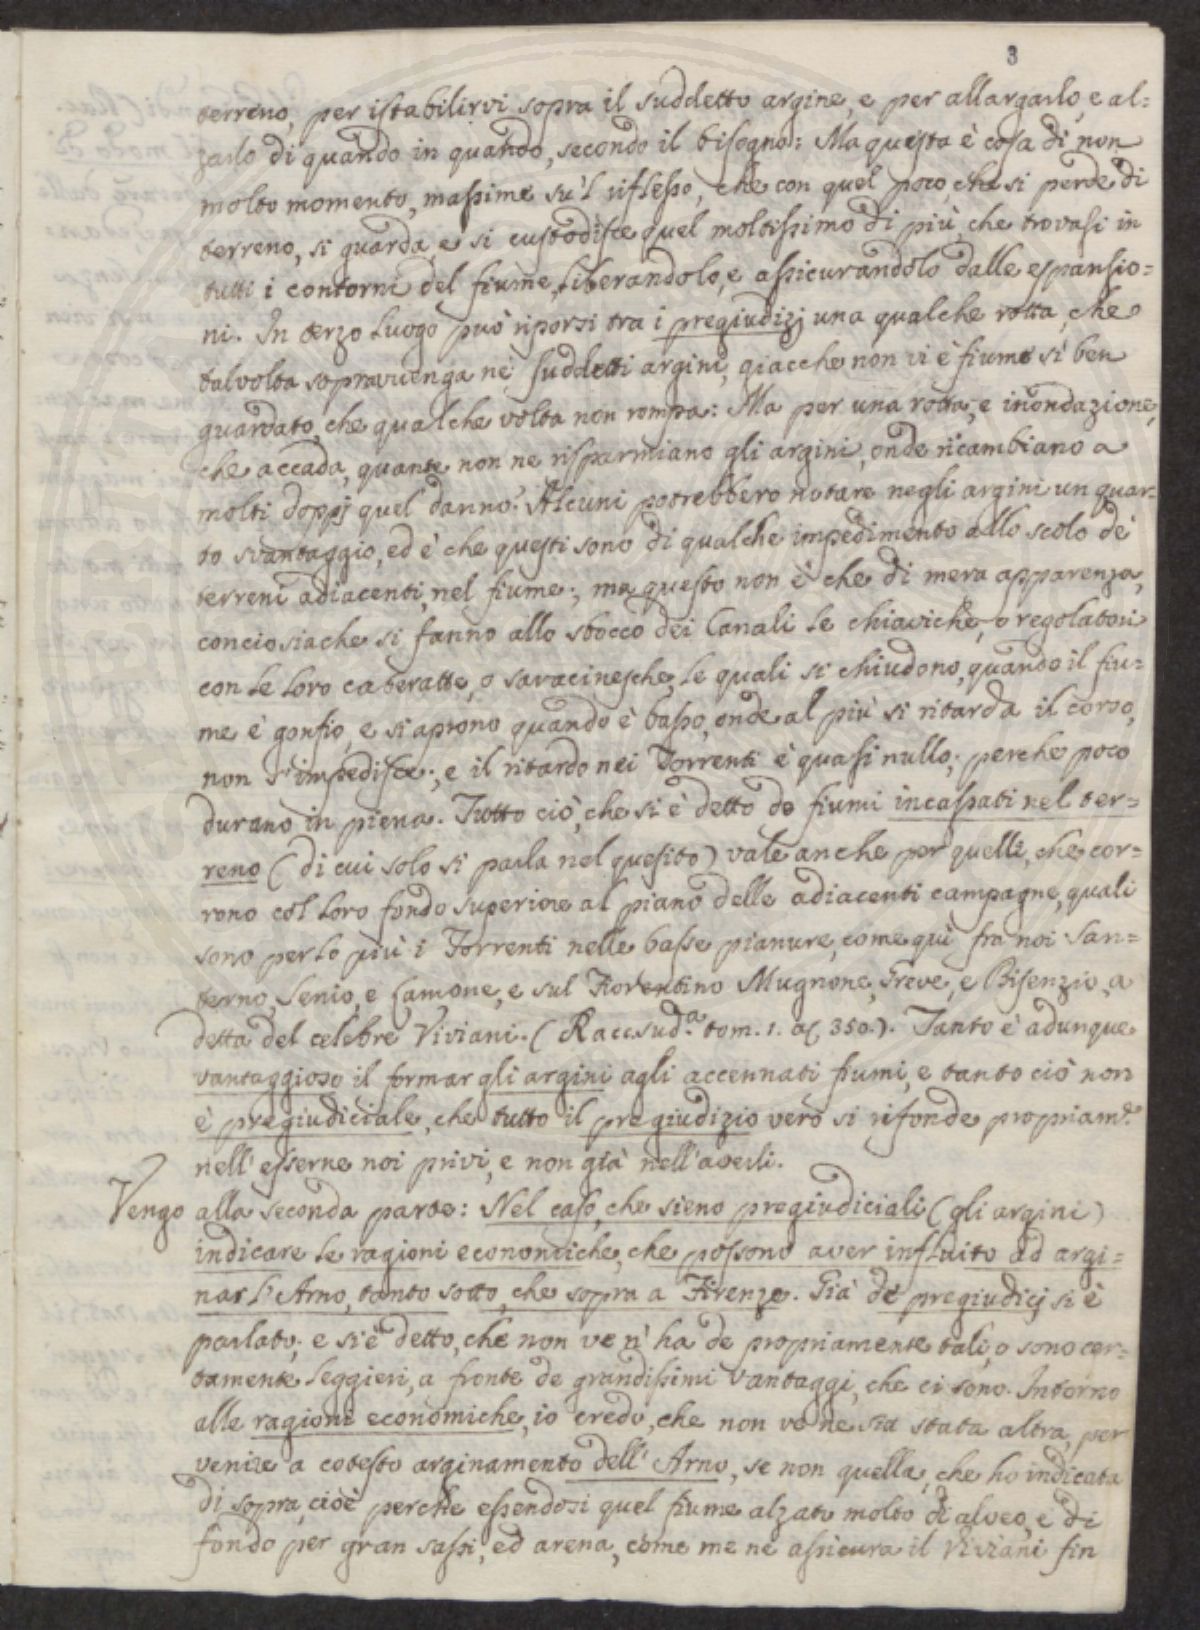 3
terreno, per istabilirvi sopra il suddetto argine, e per allargarlo, e al=
zarlo di quando in quando, secondo il bisogno: Ma questa è cosa di non
molto momento, massime su'l riflesso, che con quel poco, che si perde di
terreno, si guarda, e si custodisce quel moltissimo di più, che trovasi in
tutti i contorni del fiume, liberandolo, e assicurandolo dalle espansio=
ni. In terzo luogo può riporsi tra i pregiudizj una qualche rotta, che
talvolta sopravvenga ne' suddetti argini, giacche non vi è fiume sì ben
guardato, che qualche volta non rompa: Ma per una rotta, e inondazione,
che accada, quante non ne risparmiano gli argini, onde ricambiano a
molti doppj quel danno? Alcuni potrebbero notare negli argini un quar=
to svantaggio, ed è che questi sono di qualche impedimento allo scolo de'
terreni adiacenti, nel fiume; ma questo non è che di mera apparenza,
conciosiache si fanno allo sbocco dei Canali le chiaviche, o regolatori
con le loro cateratte, o saracinesche, le quali si chiudono, quando il fiu=
me è gonfio, e si aprono quando è basso, onde al più si ritarda il corso,
non s'impedisce; e il ritardo nei Torrenti è quasi nullo; perche poco
durano in piena. Tutto ciò, che si è detto de fiumi incassati nel ter=
reno (di cui solo si parla nel quesito) vale anche per quelli, che cor=
rono col loro fondo superiore al piano delle adiacenti campagne, quali
sono per lo più i Torrenti nelle basse pianure, come quì fra noi San=
terno, Senio, e Lamone, e sul Fiorentino Mugnone, Greve, e Bisenzio, a
detta del celebre Viviani. (Racc. sud.a tom. 1. a c. 350.). Tanto è adunque
vantaggioso il formar gli argini agli accennati fiumi, e tanto ciò non
è pregiudiciale, che tutto il pregiudizio vero si rifonde propriam.e
nell'esserne noi privi, e non già nell'averli.
Vengo alla seconda parte: Nel caso, che sieno pregiudiciali (gli argini)
indicare le ragioni economiche, che possono aver influito ad argi=
nar l'Arno, tanto sotto, che sopra a Firenze. Già de' pregiudicj si è
parlato; e si è detto, che non ve n'ha de propriamente tali, o sono cer=
tamente leggieri, a fronte de grandissimi vantaggi, che ci sono. Intorno
alle ragioni economiche, io credo, che non ve ne sia stata altra, per
venire a cotesto arginamento dell'Arno, se non quella, che ho indicata
di sopra, cioè perche essendosi quel fiume alzato molto di alveo, e di
fondo per gran sassi, ed arena, come me ne assicura il Viviani fin